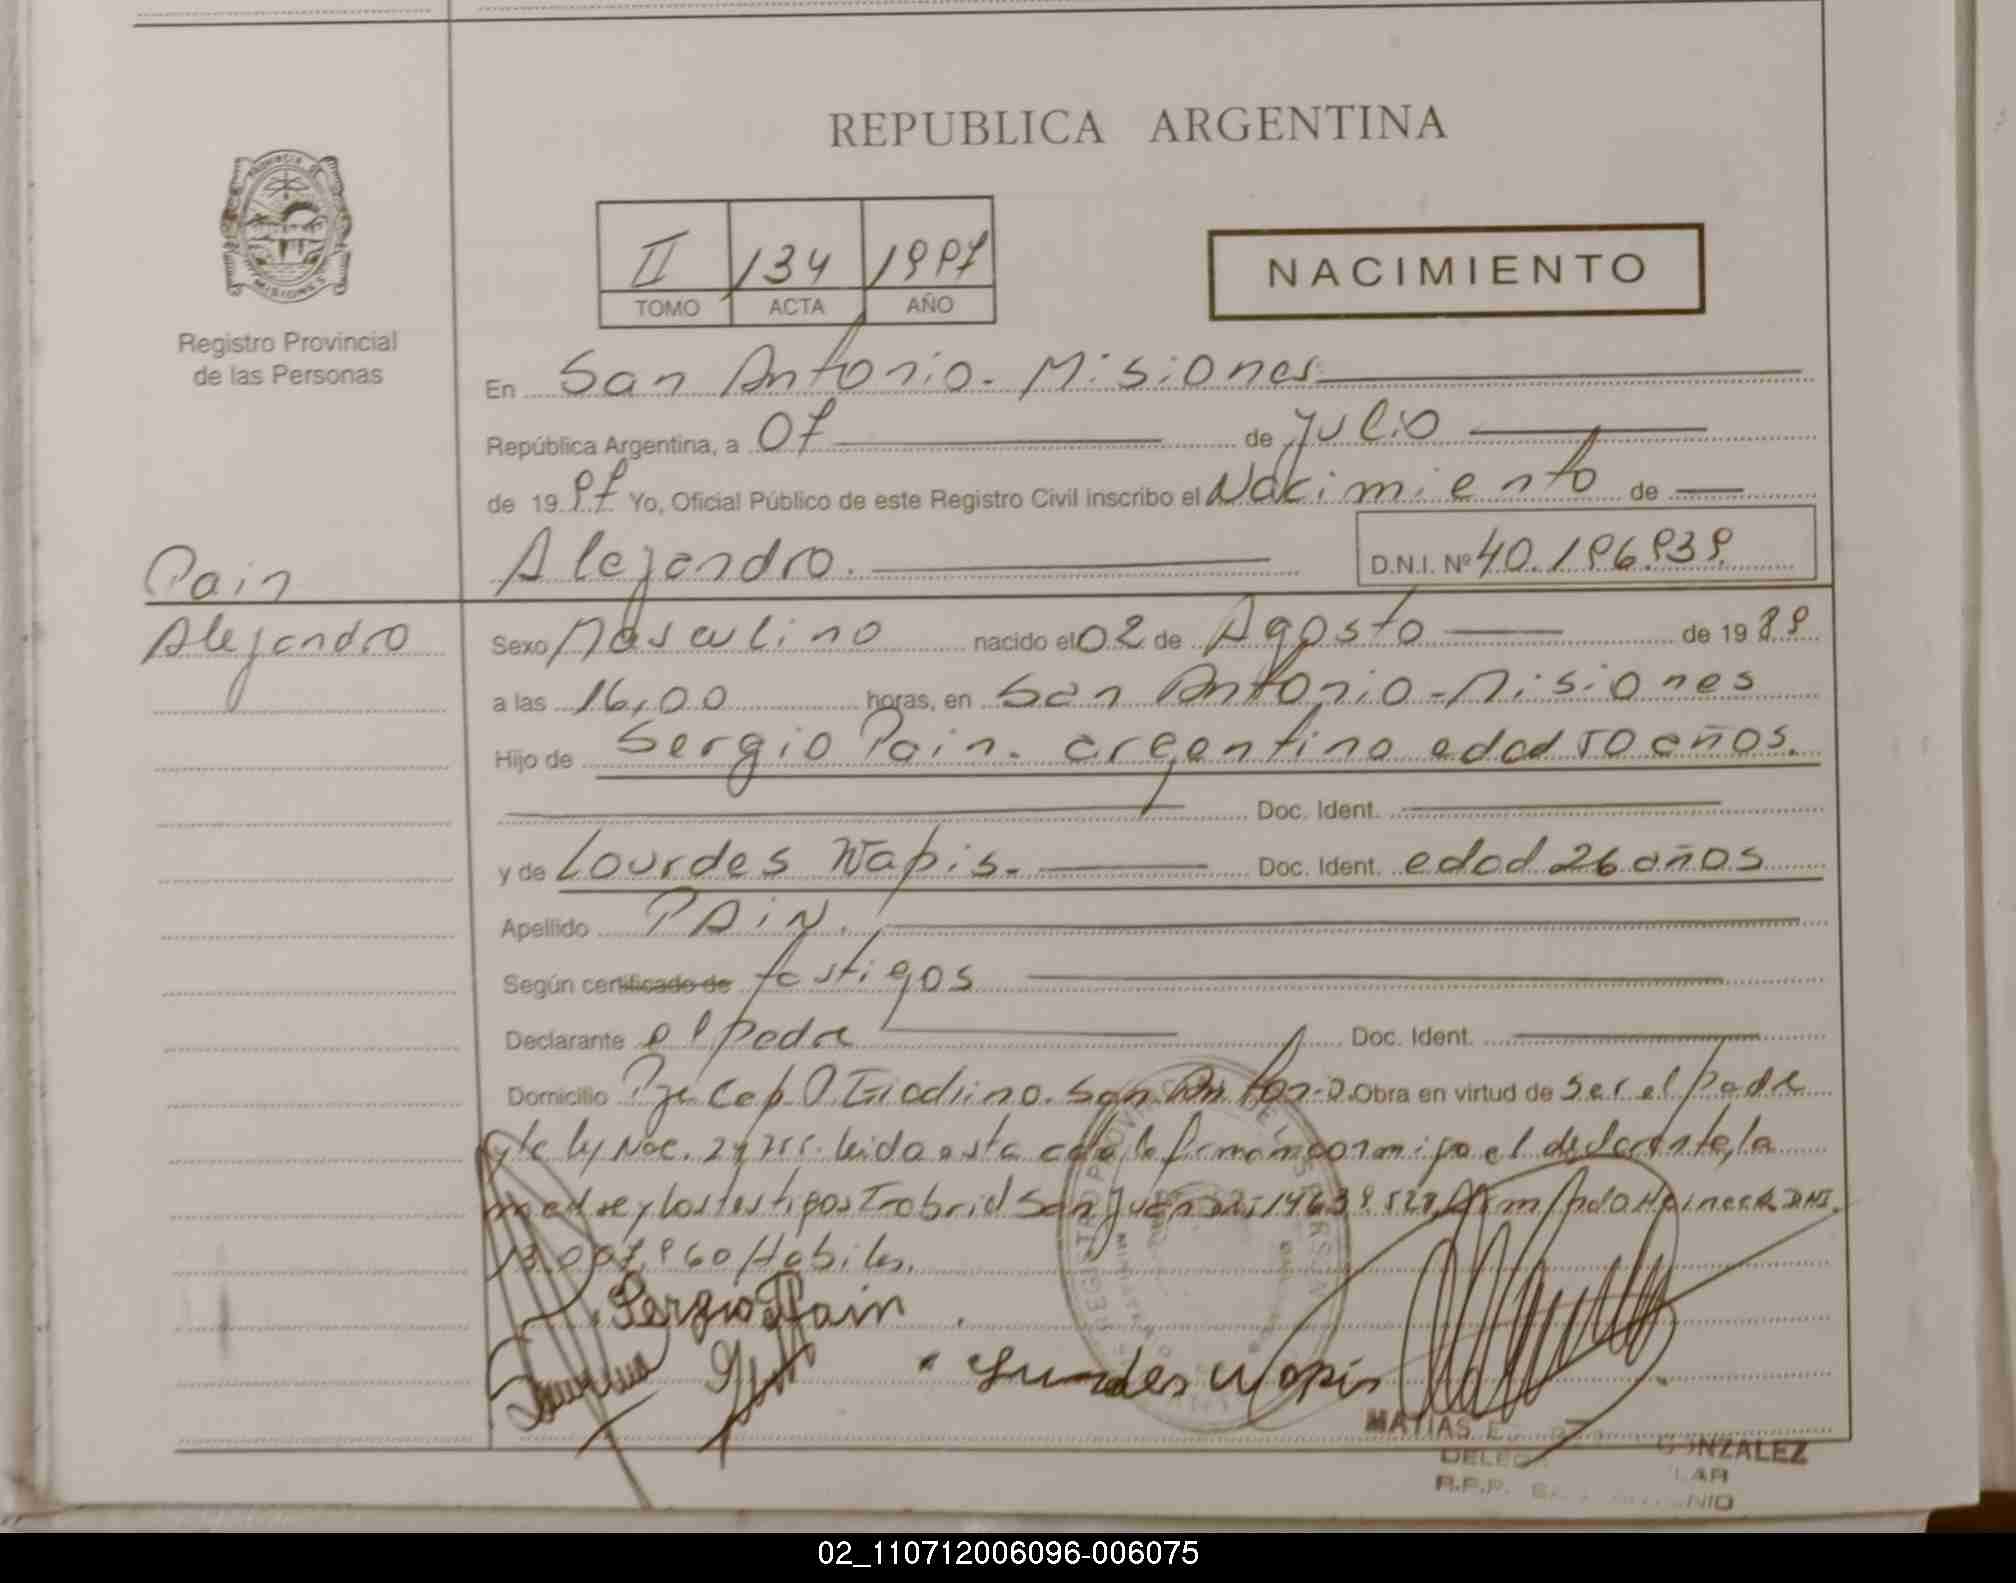 REPUBLICA ARGENTINA
PROVINCIA DE MISIONES
Registro Provincial
de las Personas
II 134 1997
TOMO ACTA AÑO
NACIMIENTO
En San Antonio - Misiones
República Argentina, a 07 de Julio
de 1997 Yo, Oficial Público de este Registro Civil inscribo el Nacimiento de
Alejandro. D.N.I. Nº 40.196.939.
Pain
Alejandro
Sexo Masculino nacido el 02 de Agosto de 1989
a las 16,00 horas, en San Antonio - Misiones
Hijo de Sergio Pain. argentino edad 50 años.
Doc. Ident.
y de Lourdes Wapis. Doc. Ident. edad 26 años
Apellido PAIN.
Según certificado de testigos
Declarante el padre Doc. Ident.
Domicilio Pje Cap. San Antonio. Obra en virtud de ser el padre
y la ley Nac. leida esta acta la firman conmigo el declarante, la
madre y los testigos San Juan DNI
Habiles.
Sergio Pain
Lurdes Wopis
MATIAS E. GONZALEZ
R.P.P.
02_110712006096-006075